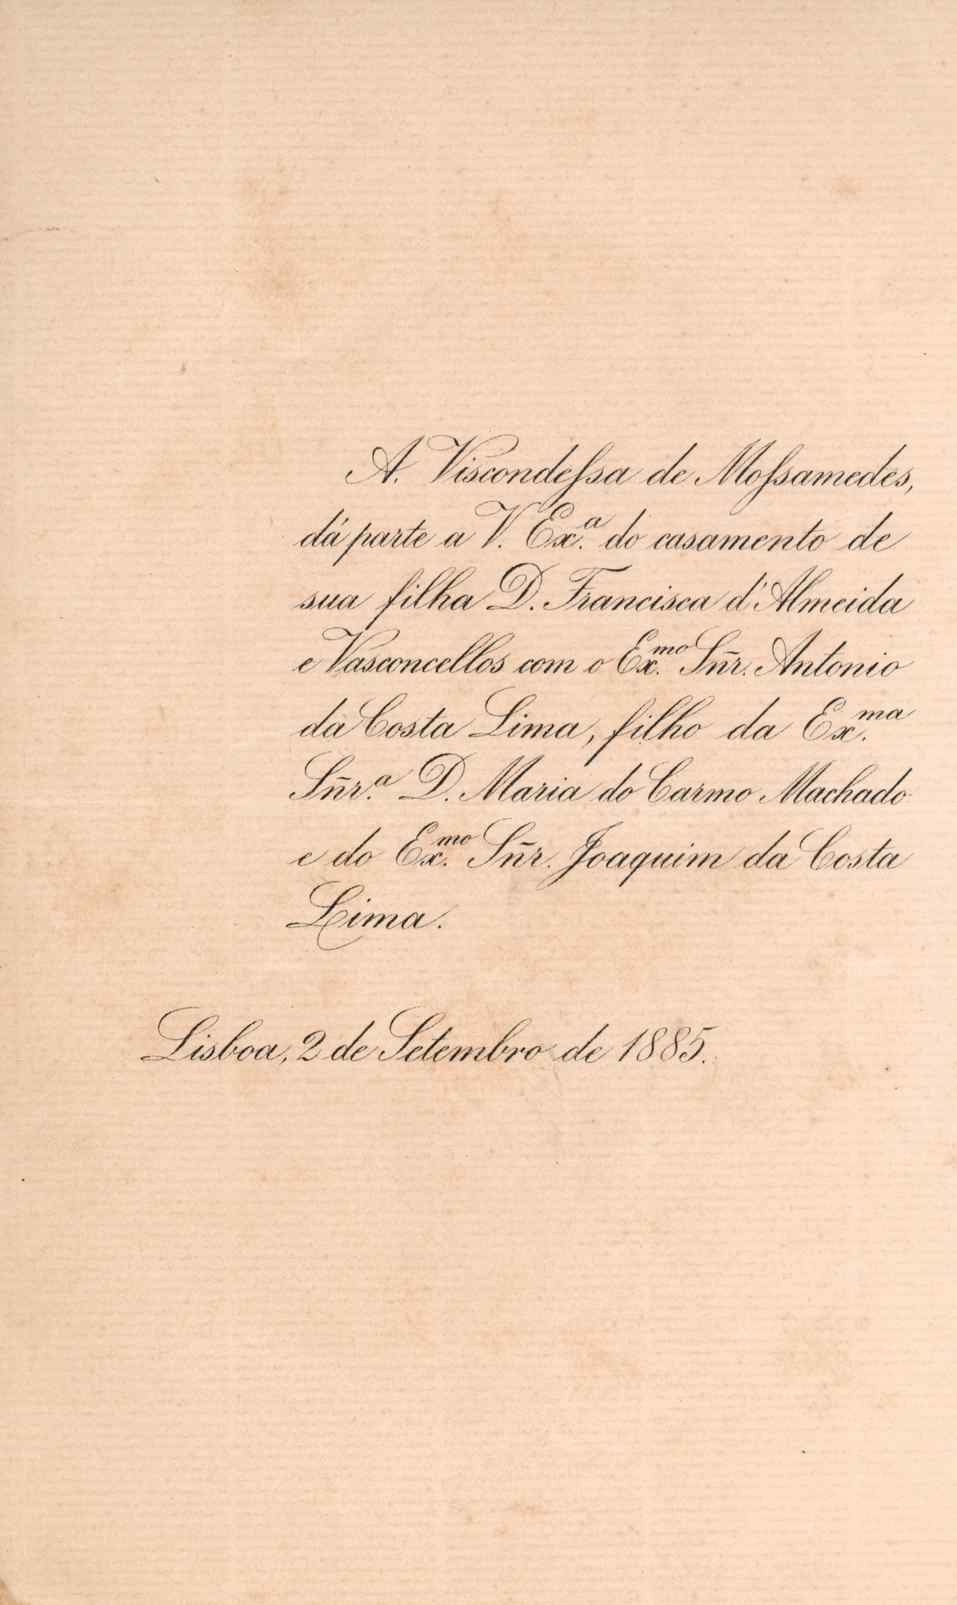 A. Viscondessa de Mossamedes,
dá parte a V. Ex.ª do casamento de
sua filha D. Francisca d'Almeida
e Vasconcellos com o Ex.mo Sñr. Antonio
da Costa Lima, filho da Ex.ma
Sñr.ª D. Maria do Carmo Machado
e do Ex.mo Sñr. Joaquim da Costa
Lima.
Lisboa, 2 de Setembro de 1885.